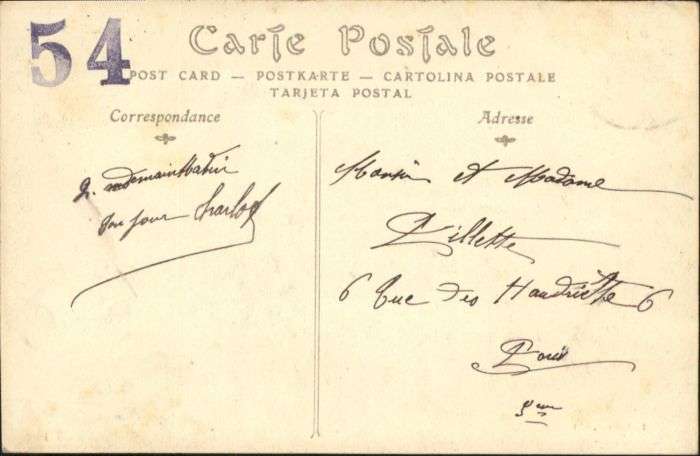 54
Carte Postale
POST CARD — POSTKARTE — CARTOLINA POSTALE
TARJETA POSTAL
Correspondance
Adresse
demain Matin
Bon jour Charlot
Monsieur et Madame
Pillette
6 Rue des Haudriettes 6
Paris